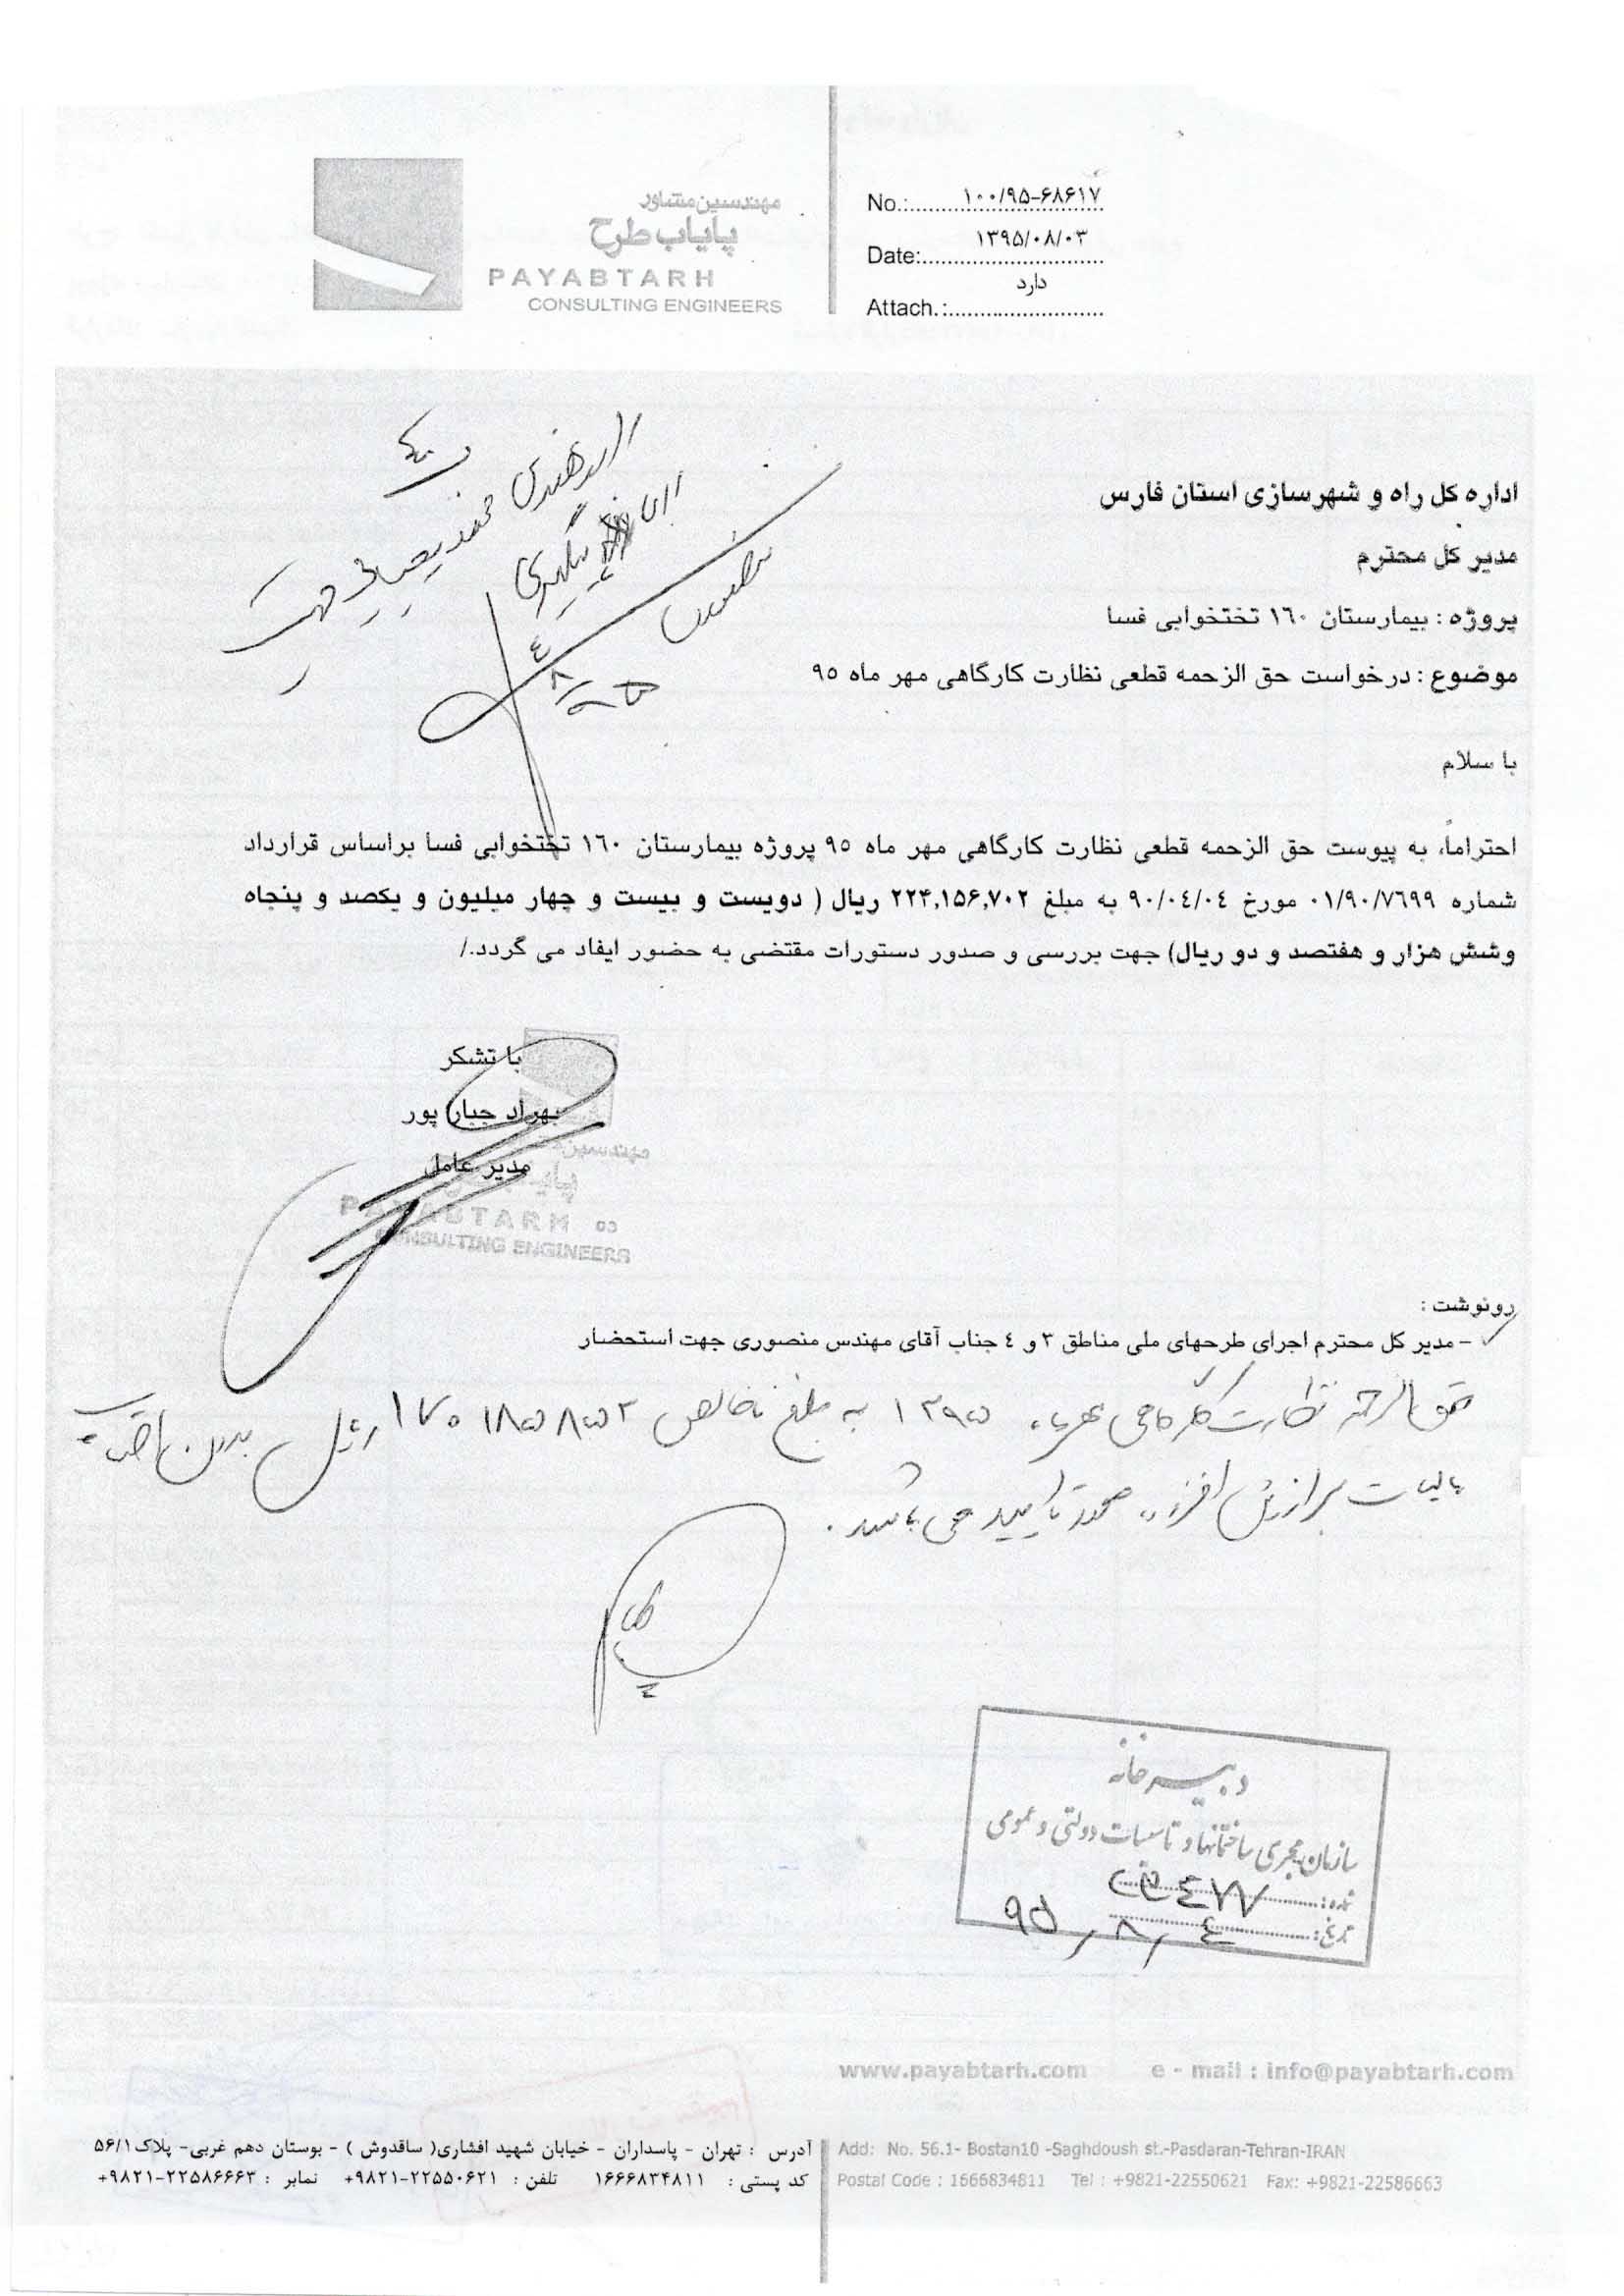 مهندسین مشاور
پایاب طرح
PAYABTARH
CONSULTING ENGINEERS
No.:.......... ۱۰۰/۹۵-۶۸۶۱۷
Date:.......... ۱۳۹۵/۰۸/۰۳
Attach.:.......... دارد
اداره کل راه و شهرسازی استان فارس
مدیر کل محترم
پروژه : بیمارستان ١٦٠ تختخوابی فسا
موضوع : درخواست حق الزحمه قطعی نظارت کارگاهی مهر ماه ٩٥
با سلام
احتراماً، به پیوست حق الزحمه قطعی نظارت کارگاهی مهر ماه ٩٥ پروژه بیمارستان ١٦٠ تختخوابی فسا براساس قرارداد
شماره ٠١/٩٠/٧٦٩٩ مورخ ٩٠/٠٤/٠٤ به مبلغ ۲۲۴,۱۵۶,۷۰۲ ریال ( دویست و بیست و چهار میلیون و یکصد و پنجاه
وشش هزار و هفتصد و دو ریال) جهت بررسی و صدور دستورات مقتضی به حضور ایفاد می گردد./
با تشکر
بهراد جبار پور
مدیر عامل
مهندسین
PAYABTARH
CONSULTING ENGINEERS
رونوشت :
- مدیر کل محترم اجرای طرحهای ملی مناطق ٣ و ٤ جناب آقای مهندس منصوری جهت استحضار
حق الزحمه نظارت کارگاهی مهرماه ١٣٩٥ به مبلغ ناخالص ١٧٠١٨٥٨٥٣ ریال بدون احتساب
مالیات بر ارزش افزوده مورد تایید می باشد.
دبیرخانه
سازمان مجری ساختمانها و تاسیسات دولتی و عمومی
شماره:
تاریخ: ٩٥/٨/٤
www.payabtarh.com e - mail : info@payabtarh.com
آدرس : تهران - پاسداران - خیابان شهید افشاری( ساقدوش ) - بوستان دهم غربی- پلاک ۵۶/۱
کد پستی : ۱۶۶۶۸۳۴۸۱۱ تلفن : ۲۲۵۵۰۶۲۱-۹۸۲۱+ نمابر : ۲۲۵۸۶۶۶۳-۹۸۲۱+
Add: No. 56.1- Bostan10 -Saghdoush st.-Pasdaran-Tehran-IRAN
Postal Code : 1666834811 Tel : +9821-22550621 Fax: +9821-22586663